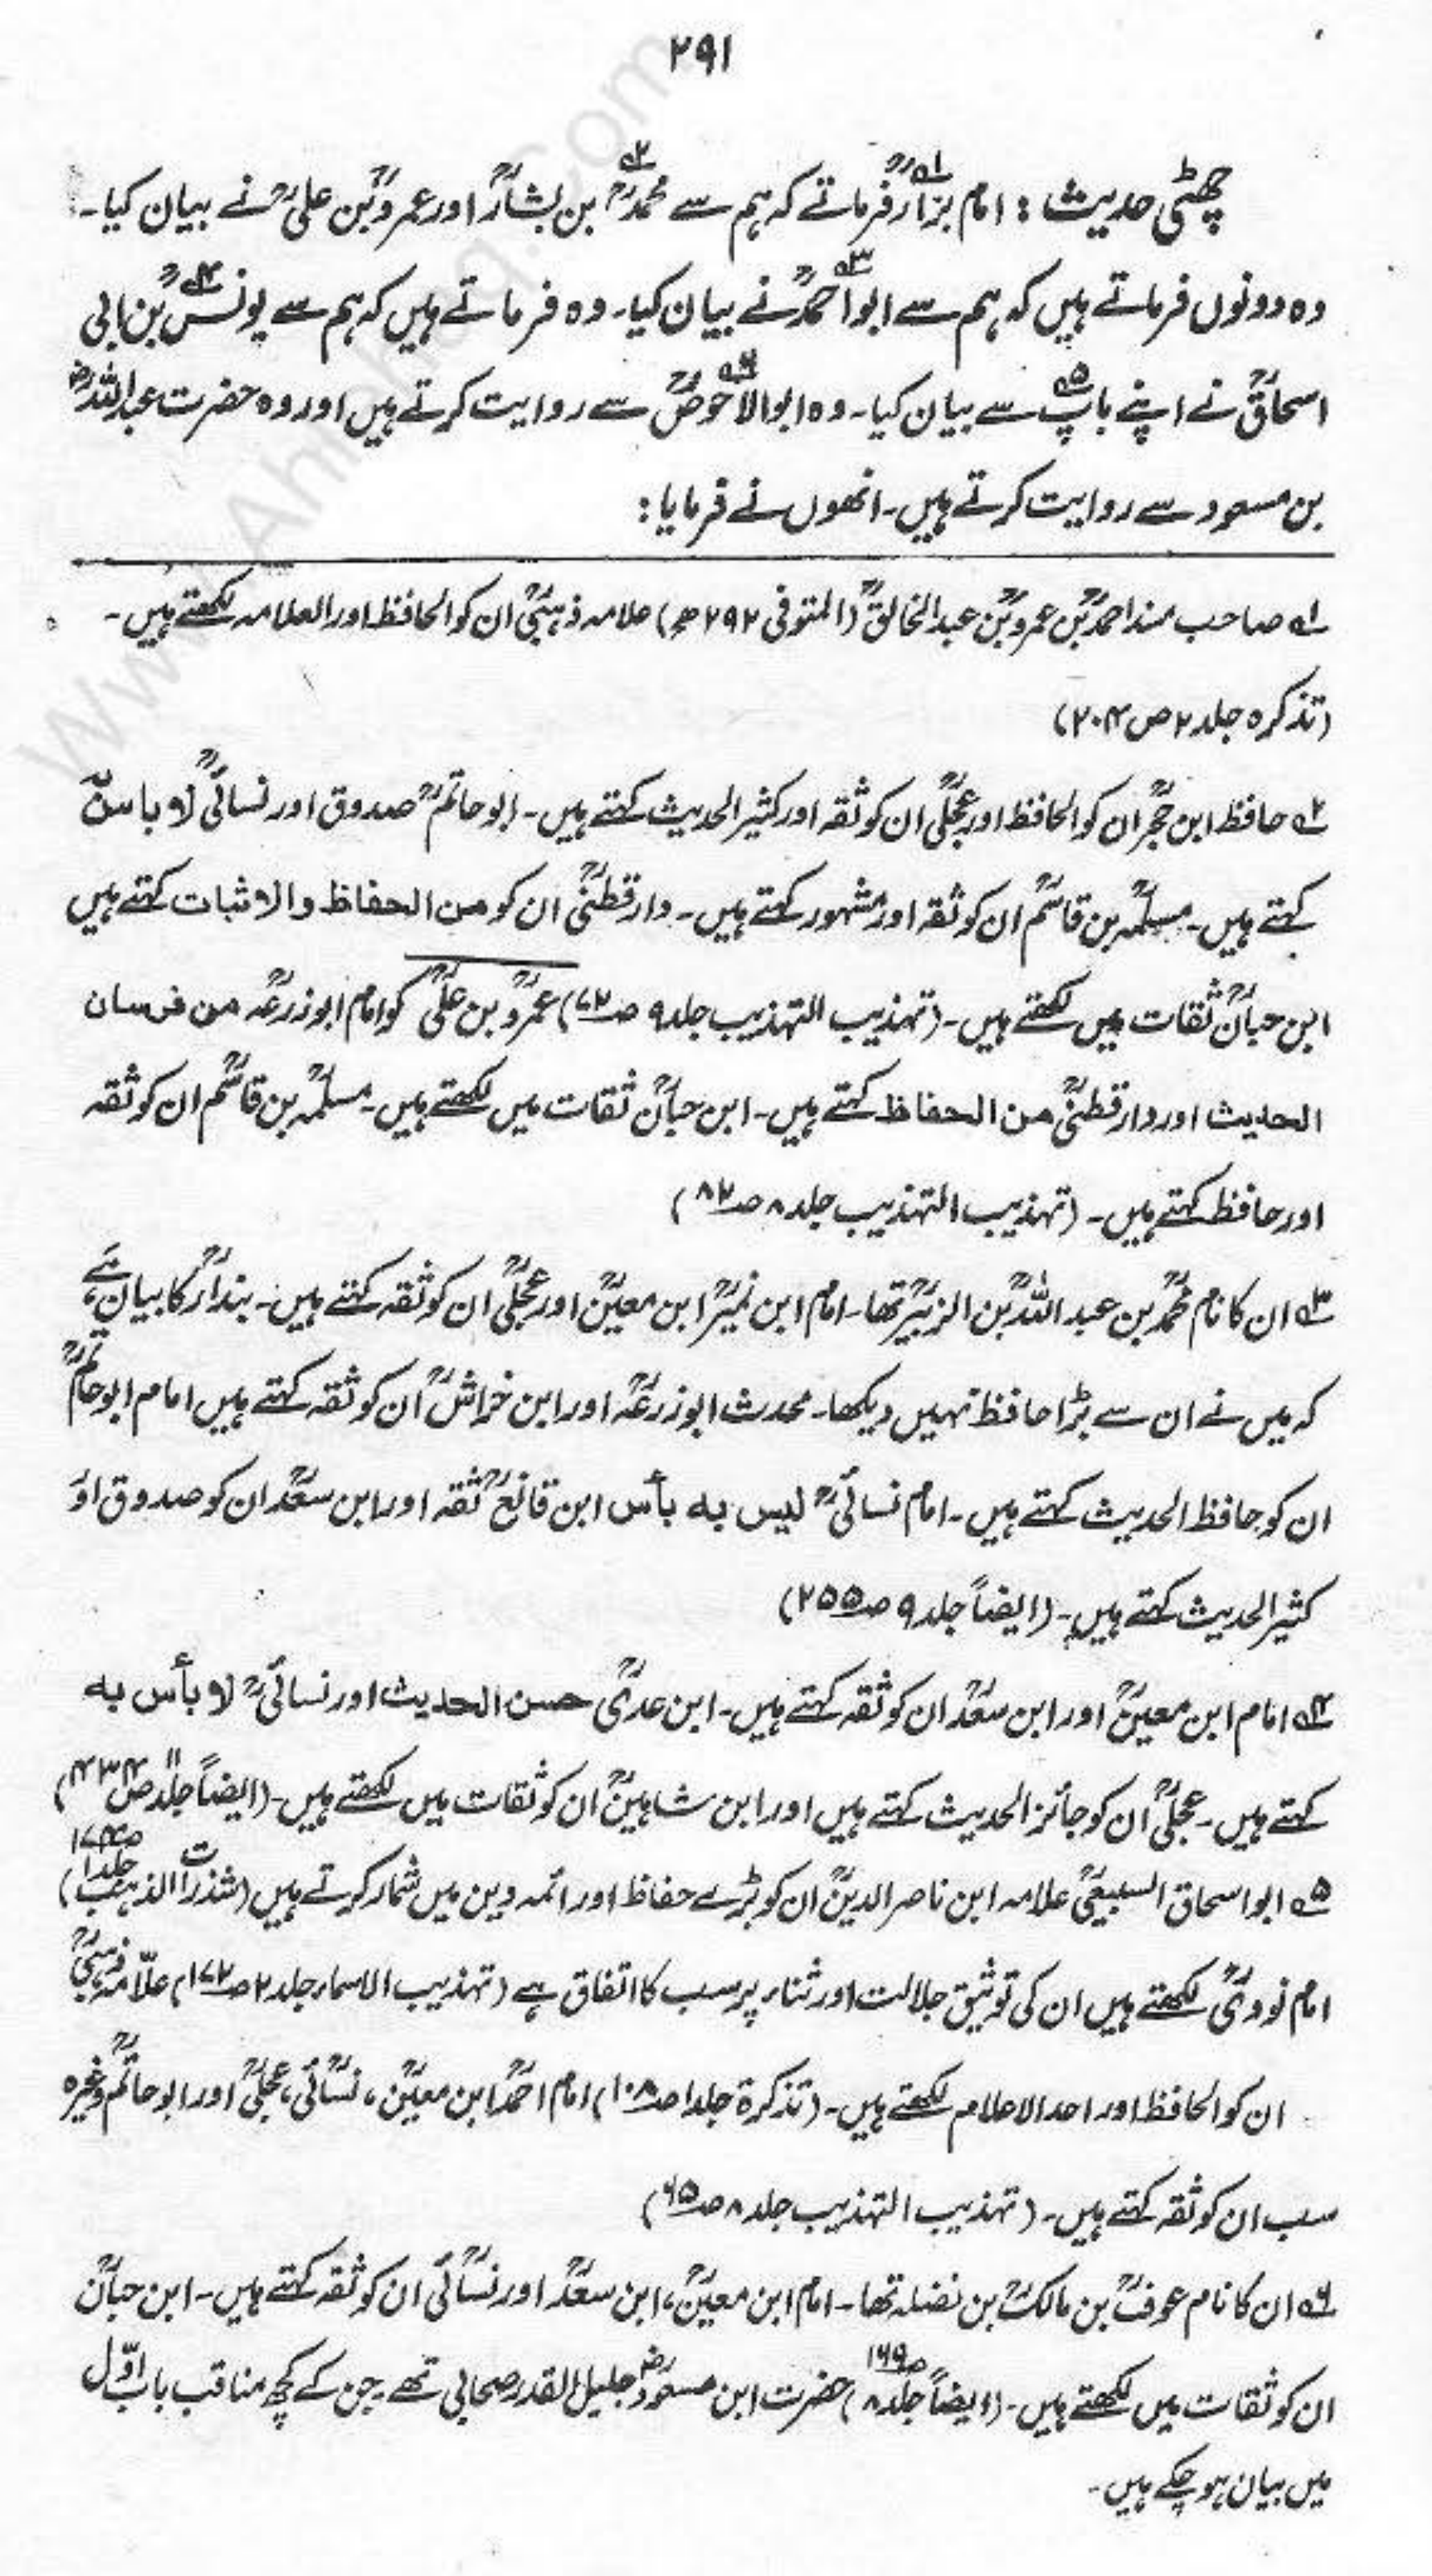 ۲۹۱
چھٹی حدیث : امام بزارؒ فرماتے کہ ہم سے محمدؒ بن بشارؒ اور عمروؒ بن علیؒ نے بیان کیا۔
وہ دونوں فرماتے ہیں کہ ہم سے ابو احمدؒ نے بیان کیا۔ وہ فرماتے ہیں کہ ہم سے یونسؒ بن ابی
اسحاقؒ نے اپنے باپ سے بیان کیا۔ وہ ابو الاحوصؒ سے روایت کرتے ہیں اور وہ حضرت عبد اللہؓ
بن مسعود سے روایت کرتے ہیں۔ انھوں نے فرمایا :
؎۱ صاحب مسند احمدؒ بن عمروؒ بن عبد الخالقؒ (المتوفی ۲۹۲ھ) علامہ ذہبیؒ ان کو الحافظ اور العلامہ لکھتے ہیں۔
(تذکرہ جلد ۲ ص ۲۰۴)
؎۲ حافظ ابن حجرؒ ان کو الحافظ اور عجلیؒ ان کو ثقہ اور کثیر الحدیث کہتے ہیں۔ ابو حاتمؒ صدوق اور نسائیؒ لا باس
کہتے ہیں۔ مسلمہؒ بن قاسمؒ ان کو ثقہ اور مشہور کہتے ہیں۔ دارقطنیؒ ان کو من الحفاظ والاثبات کہتے ہیں
ابن حبانؒ ثقات میں لکھتے ہیں۔ (تہذیب التہذیب جلد ۹ ص ۷۲) عمروؒ بن علیؒ کو امام ابوزرعہؒ من فرسان
الحدیث اور دارقطنیؒ من الحفاظ کہتے ہیں۔ ابن حبانؒ ثقات میں لکھتے ہیں۔ مسلمہؒ بن قاسمؒ ان کو ثقہ
اور حافظ کہتے ہیں۔ (تہذیب التہذیب جلد ۸ ص ۸۲)
؎۳ ان کا نام محمدؒ بن عبد اللہؒ بن الزبیرؒ تھا۔ امام ابن نمیرؒ ابن معینؒ اور عجلیؒ ان کو ثقہ کہتے ہیں۔ بندارؒ کا بیان ہے،
کہ میں نے ان سے بڑا حافظ نہیں دیکھا۔ محدث ابوزرعہؒ اور ابن خراشؒ ان کو ثقہ کہتے ہیں امام ابو حاتمؒ
ان کو حافظ الحدیث کہتے ہیں۔ امام نسائیؒ لیس بہ بأس ابن قانعؒ ثقہ اور ابن سعدؒ ان کو صدوق اور
کثیر الحدیث کہتے ہیں۔ (ایضاً جلد ۹ ص ۲۵۵)
؎۴ امام ابن معینؒ اور ابن سعدؒ ان کو ثقہ کہتے ہیں۔ ابن عدیؒ حسن الحدیث اور نسائیؒ لا بأس بہ
کہتے ہیں۔ عجلیؒ ان کو جائز الحدیث کہتے ہیں اور ابن شاہینؒ ان کو ثقات میں لکھتے ہیں۔ (ایضاً جلد ۱۱ ص ۴۳۴)
؎۵ ابو اسحاق السبیعیؒ علامہ ابن ناصر الدینؒ ان کو بڑے حفاظ اور ائمہ دین میں شمار کرتے ہیں (شذرات الذہب جلد ۱ ص ۱۷۴)
امام نوویؒ لکھتے ہیں ان کی توثیق جلالت اور ثناء پر سب کا اتفاق ہے (تہذیب الاسماء جلد ۲ ص ۱۷۲) علّامہ ذہبیؒ
ان کو الحافظ اور احد الاعلام لکھتے ہیں۔ (تذکرۃ جلد ۱ ص ۱۰۸) امام احمدؒ ابن معینؒ، نسائیؒ، عجلیؒ اور ابو حاتمؒ وغیرہ
سب ان کو ثقہ کہتے ہیں۔ (تہذیب التہذیب جلد ۸ ص ۶۵)
؎۶ ان کا نام عوفؒ بن مالکؒ بن نضلہ تھا۔ امام ابن معینؒ، ابن سعدؒ اور نسائیؒ ان کو ثقہ کہتے ہیں۔ ابن حبانؒ
ان کو ثقات میں لکھتے ہیں۔ (ایضاً جلد ۸ ص ۱۶۹) حضرت ابن مسعودؓ جلیل القدر صحابی تھے۔ جن کے کچھ مناقب باب اوّل
میں بیان ہو چکے ہیں۔